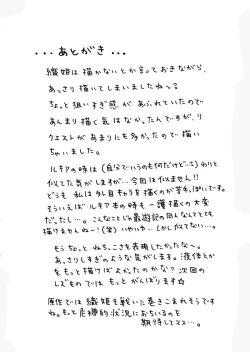 ・・・あとがき・・・
織姫は描かないとか言っておきながら、
あっさり描いてしまいましたね～。
ちょっと狙いすぎ感があふれていたので
あんまり描く気はなかったんですが、リ
クエストがあまりにも多かったので描い
ちゃいました。
ルキアの時は(自分でいうのも何だけど…)わりと
似てた気がしますが…今回は似てません!!
どうも私はタレ目キャラを描くのが苦手っぽいです。
そういえばルキア本の時も一護描くの大変
だった…し…。こんなことじゃ最遊記の
描けませんねー!(笑) いやいや…しかし似てない…。
もうちょっとねちっこさを表現したかったな～。
あっさりしすぎのような気がします。液体とか
をもっと描けばよかったのかな? 次回の
しズものではもっとがんばります☆
原作では織姫を戦いに巻きこまれそうです
ね。もっと危機的状況におちいるのを
期待してマス…。